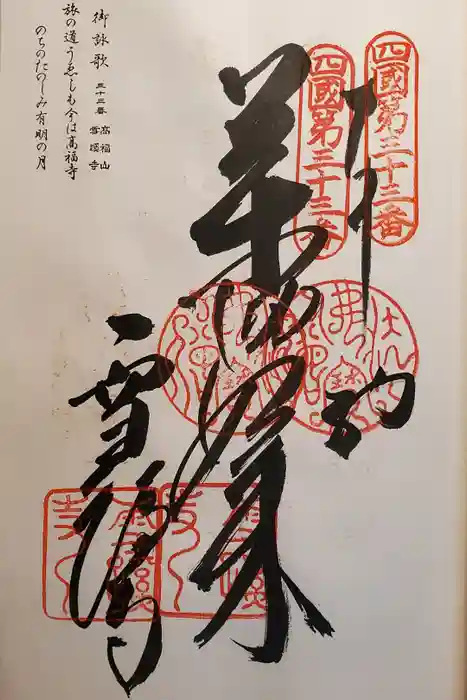 四國第三十三番
四國第三十三番
奉納
薬師如来
雪蹊寺
御詠歌 三十三番 高福山 雪蹊寺
旅の道うゑしも今は高福寺
のちのたのしみ有明の月